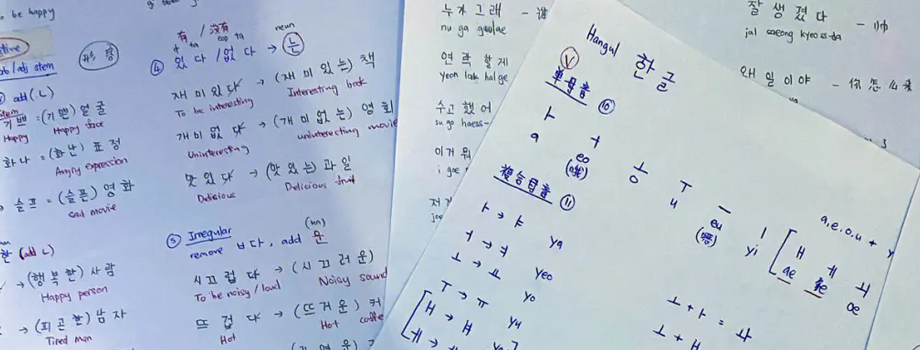 to be happy
ob/adj stem
add (L)
기쁘 = (기쁜) 얼굴
Happy Happy face
화나 = (화난) 표정
Angry expression
슬프 = (슬픈) 영화
sad movie
한 (add L)
→ (행복한) 사람
Happy person
→ (피곤한) 남자
Tired man
有 / 没有
④ 있다 / 없다 → 는
neun
재미있다 → (재미있는) 책
To be interesting Interesting book
개미없다 → (개미없는) 영회
Uninteresting uninteresting movie
맛있다 → (맛있는) 과일
Delicious Delicious fruit
(un)
⑤ Irregular
remove ㅂ다, add 운
시끄럽다 → (시끄러운)
To be noisy / loud Noisy sound
뜨겁다 → (뜨거운) 커
Hot Hot coffe
누가 그래
nu ga geulae
연락 할게
yeon lak halge
수고 했어
su go haess-
이거 뭐
i geo
잘 생겼다 – 帅
jal saeng kyeoss-da
왜 일이야 – 你怎么
Hangul 한글
Ⓥ
单母音 ⑩
ㅏ ㅓ ㅗ ㅜ ㅡ ㅣ
a eo o u eu yi
复合母音 ⑪
a, e, o, u + y
ㅏ → ㅑ ya
ㅓ → ㅕ yeo
ㅗ → ㅛ yo
ㅜ → ㅠ yu
ㅐ → ㅒ
ㅔ →
ㅐ ㅔ ㅚ
ae oe
ㅗ + ㅏ = ㅘ
ㅗ + ㅐ